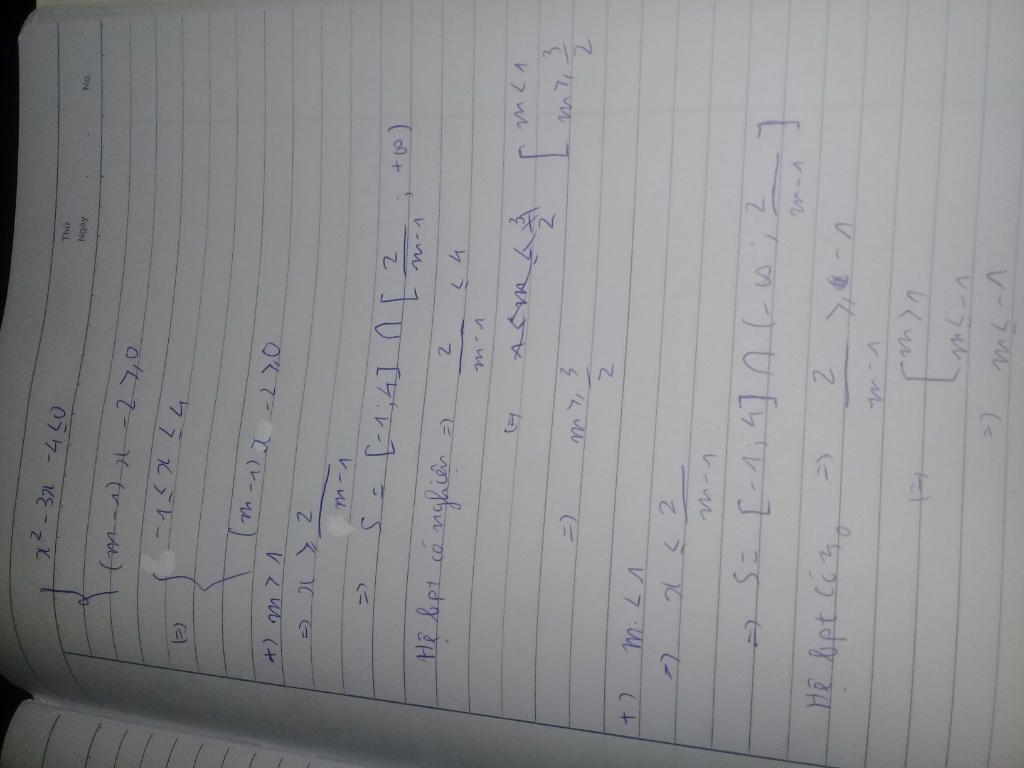 Thứ
Ngày
No.
{ x² - 3x - 4 ≤ 0
(m - 1) x - 2 ≥ 0
(=) { -1 ≤ x ≤ 4
(m - 1) x - 2 ≥ 0
+) m > 1
=) x ≥ 2/(m-1)
=) S = [-1; 4] ∩ [2/(m-1); +∞)
Hệ bpt có nghiệm =) 2/(m-1) ≤ 4
(=) [ m < 1
m ≥ 3/2
=) m ≥ 3/2
+) m < 1
=) x ≤ 2/(m-1)
=) S = [-1; 4] ∩ (-∞; 2/(m-1)]
Hệ bpt có no =) 2/(m-1) ≥ -1
(=) [ m > 1
m ≤ -1
=) m ≤ -1